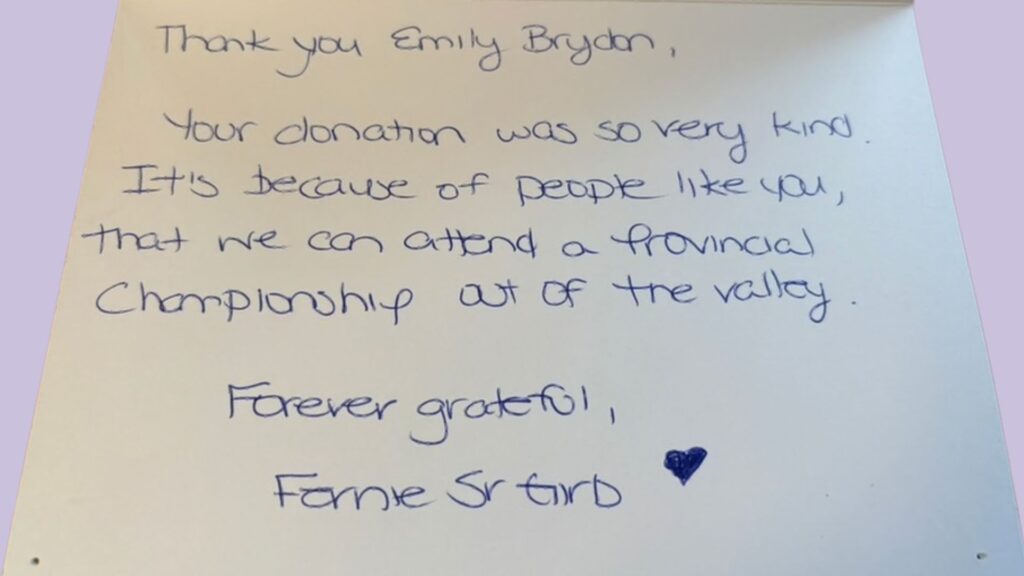 Thank you Emily Brydon,
Your donation was so very kind.
It's because of people like you,
that we can attend a Provincial
Championship out of the valley.
Forever grateful,
Fernie Sr Girls